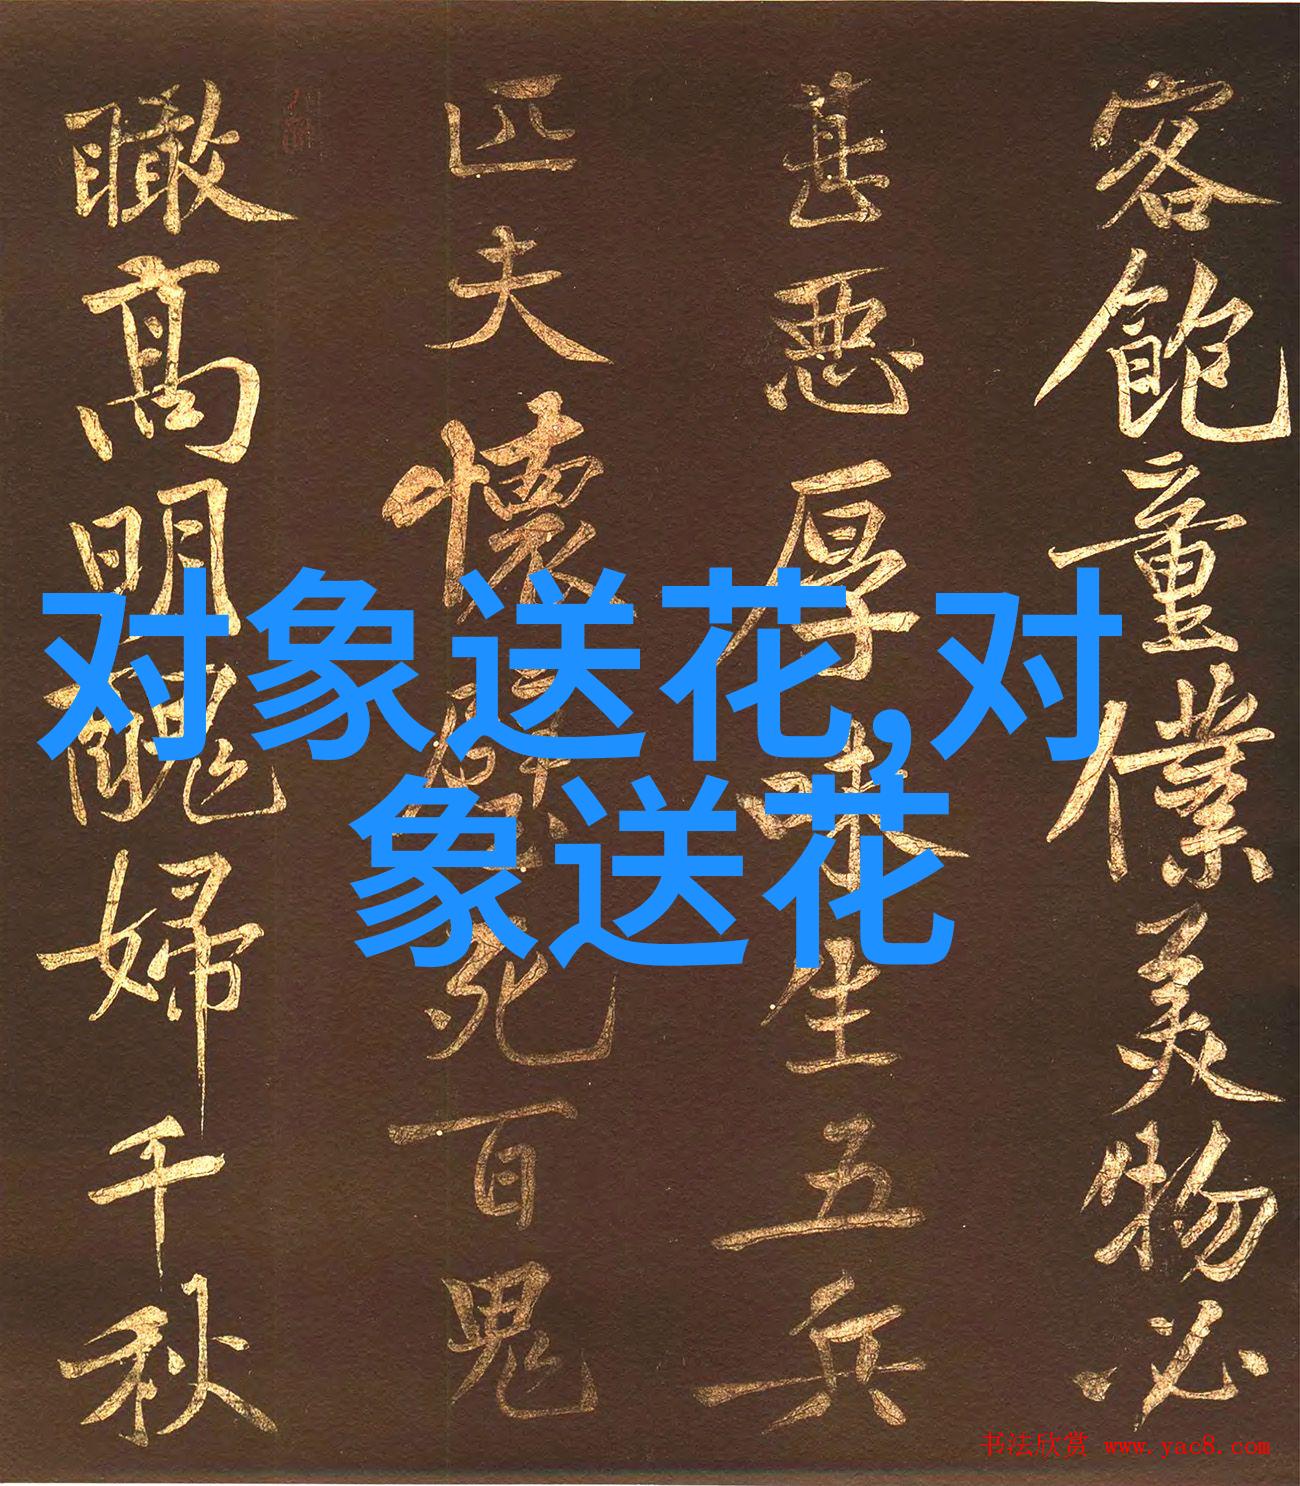 客飽童僕美物必
甚惡厚味生五兵
匹夫懷璧死百鬼
瞰高明醜婦千秋
对象送花,对
象送花
书法欣赏 www.yac8.com